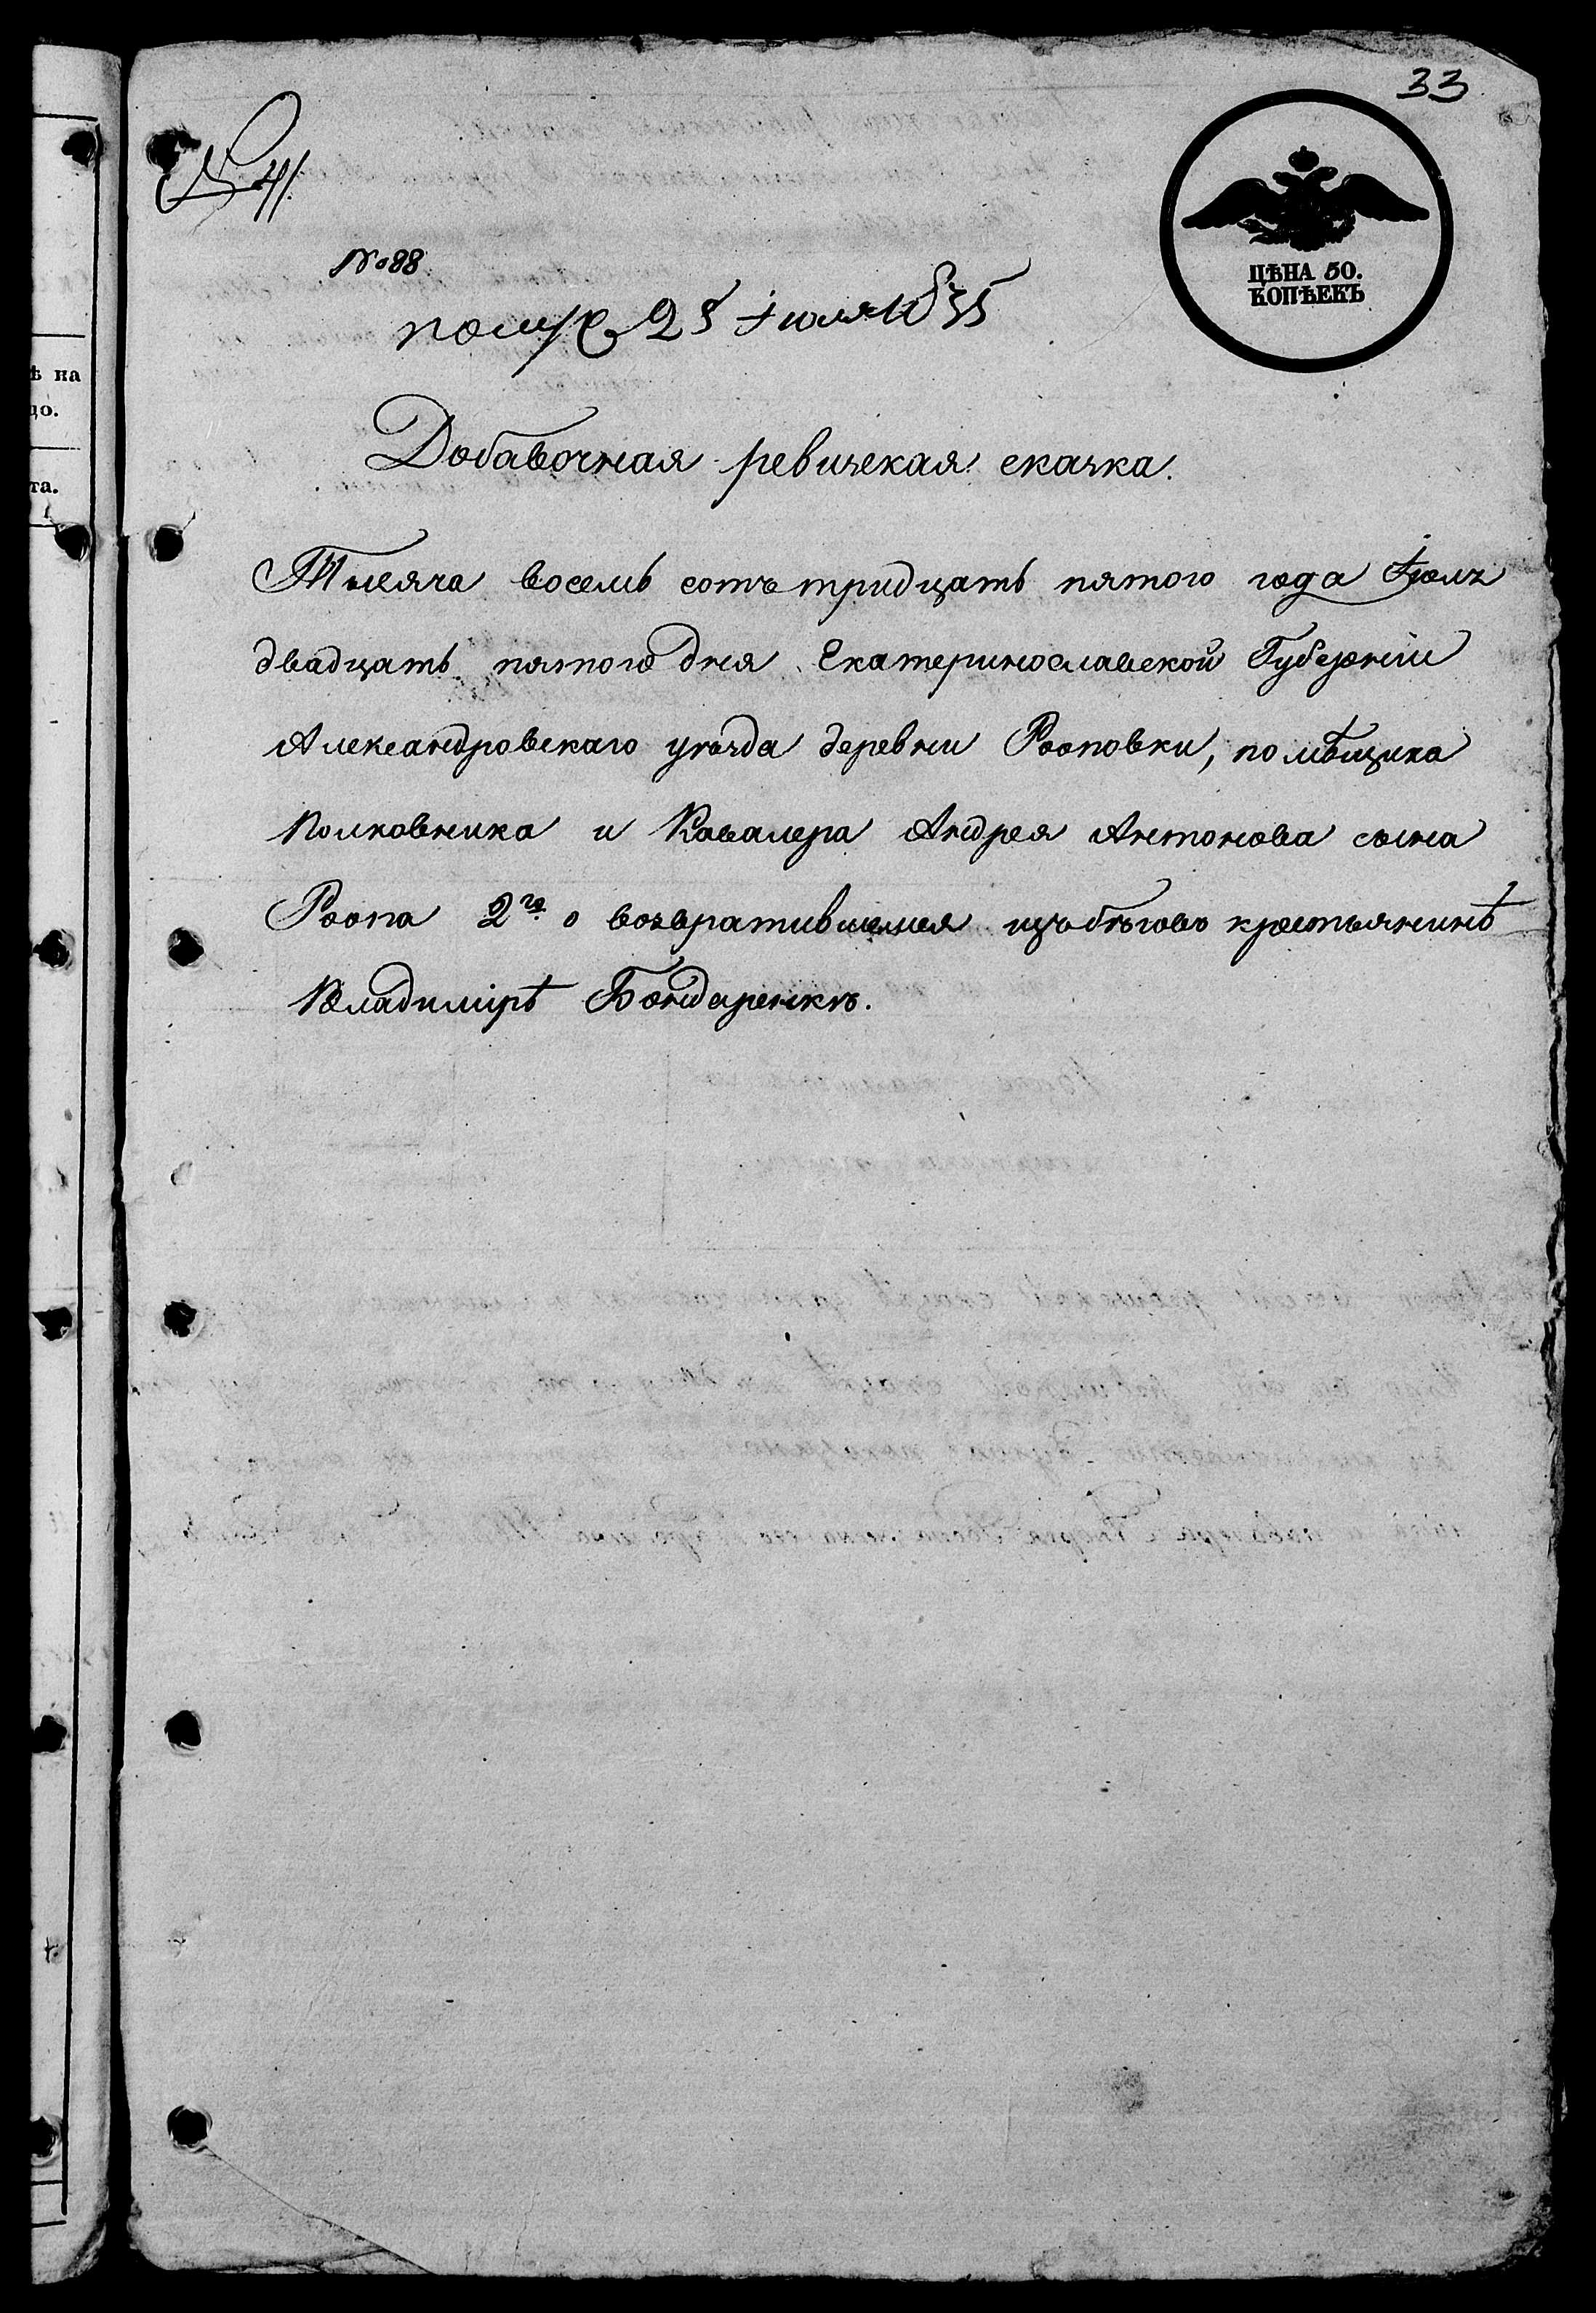 33
№ 41.
ЦѢНА 50.
КОПѢЕКЪ
№ 88
получ 25 Іюля 1835
Добавочная ревизская сказка.
Тысяча восемь сотъ тридцать пятого года Іюля
двадцать пятого дня Екатеринославской Губерніи
Александровскаго уѣзда деревни Рооповки, помѣщика
Полковника и Кавалера Андрея Антонова сына
Роопа 2го о возвратившемся изъ бѣговъ крестьянинѣ
Владимірѣ Бондаренкѣ.
ѣ на
до.
та.